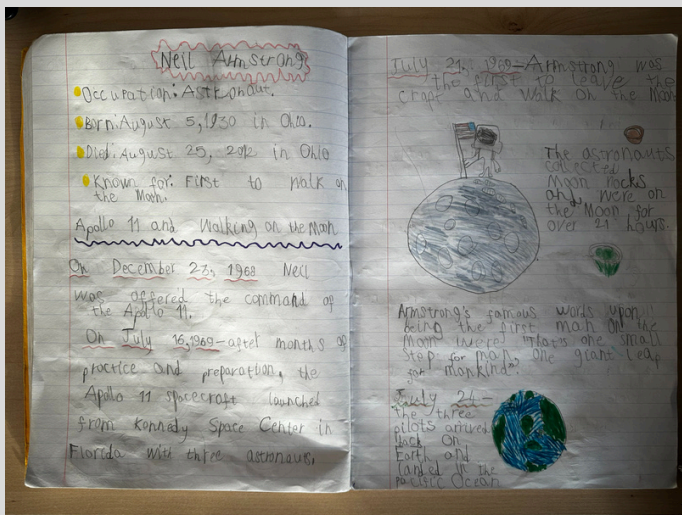 Neil Armstrong
Occupation: Astronaut.
Born: August 5, 1930 in Ohio.
Died: August 25, 2012 in Ohio
Known for: First to walk on
the Moon.
Apollo 11 and Walking on the Moon
On December 23, 1968 Neil
was offered the command of
the Apollo 11.
On July 16, 1969-after months of
practice and preparation, the
Apollo 11 spacecraft launched
from Kennedy Space Center in
Florida with three astronauts.
July 21, 1969-Armstrong was
the first to leave the
craft and walk on the Moon
The astronauts
collected
Moon rocks
and were on
the Moon for
over 21 hours.
Armstrong's famous words upon
being the first man on the
Moon were "That's one small
step for man, one giant leap
for mankind".
July 24-
The three
pilots arrived
back on
Earth and
landed in the
Pacific Ocean